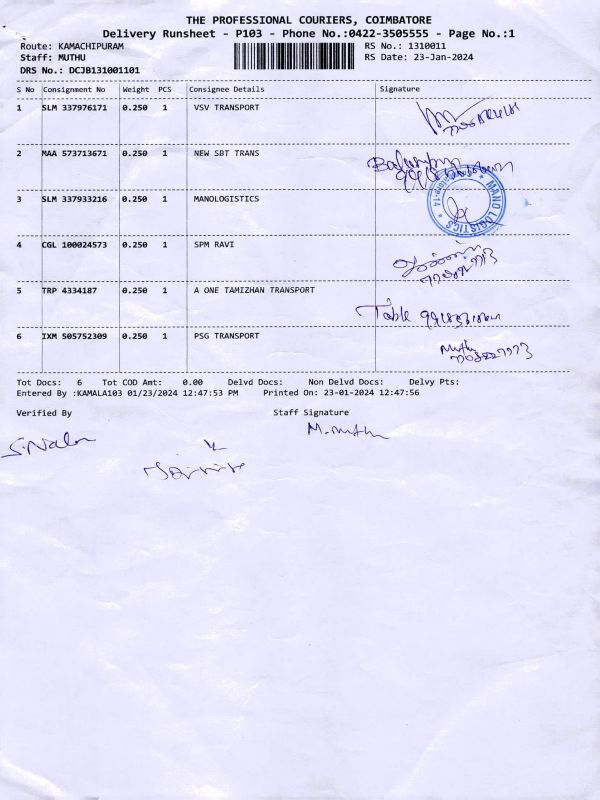 THE PROFESSIONAL COURIERS, COIMBATORE
Delivery Runsheet - P103 - Phone No.:0422-3505555 - Page No.:1
Route: KAMACHIPURAM RS No.: 1310011
Staff: MUTHU RS Date: 23-Jan-2024
DRS No.: DCJB131001101
S No Consignment No Weight PCS Consignee Details Signature
1 SLM 337976171 0.250 1 VSV TRANSPORT
2 MAA 573713671 0.250 1 NEW SBT TRANS
3 SLM 337933216 0.250 1 MANOLOGISTICS
MANO LOGISTICS
4 CGL 100024573 0.250 1 SPM RAVI
5 TRP 4334187 0.250 1 A ONE TAMIZHAN TRANSPORT
Table
6 IXM 505752309 0.250 1 PSG TRANSPORT
Muthu
Tot Docs: 6 Tot COD Amt: 0.00 Delvd Docs: Non Delvd Docs: Delvy Pts:
Entered By :KAMALA103 01/23/2024 12:47:53 PM Printed On: 23-01-2024 12:47:56
Verified By Staff Signature
M. Muthu